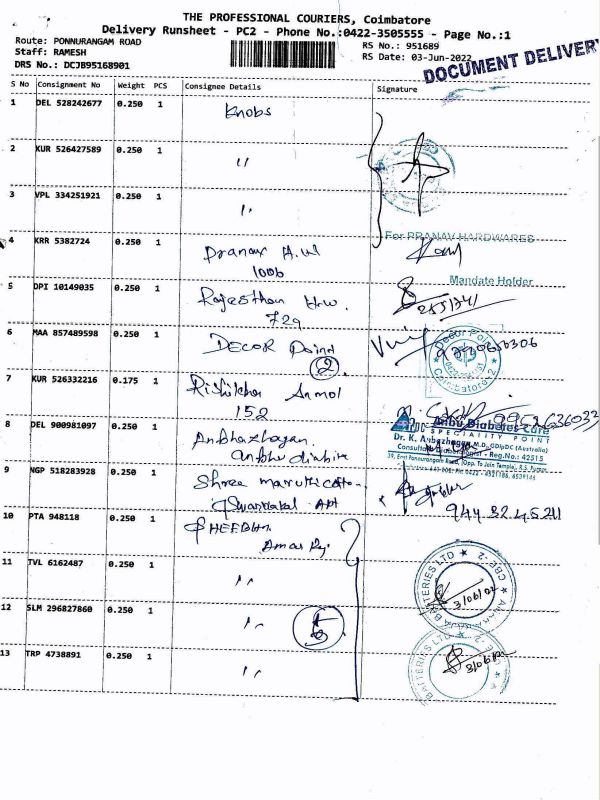 THE PROFESSIONAL COURIERS, Coimbatore
Delivery Runsheet - PC2 - Phone No.:0422-3505555 - Page No.:1
Route: PONNURANGAM ROAD
RS No.: 951689
Staff: RAMESH
RS Date: 03-Jun-2022
DRS No.: DCJB95168901
DOCUMENT DELIVERY
S No Consignment No Weight PCS Consignee Details Signature
1 DEL 528242677 0.250 1 Knobs
2 KUR 526427589 0.250 1 "
3 VPL 334251921 0.250 1 "
For PRANAV HARDWARES
4 KRR 5382724 0.250 1 Pranav H.w
1006
Mandate Holder
5 DPI 10149035 0.250 1 Rajasthan H.w.
729
6 MAA 857489598 0.250 1 DECOR Point
2
Decor Point
Coimbatore-2
7 KUR 526332216 0.175 1 Anmol
152
Anbu Diabetes Care
SPECIALITY POINT
8 DEL 900981097 0.250 1 Anbhazhagan.
Dr. K. Anbazhagan M.D., GDipDC (Australia)
Consultant Diabetologist - Reg.No.: 42515
9 NGP 518283928 0.250 1 Shree
944 32 45211
10 PTA 948118 0.250 1
Amar
11 TVL 6162487 0.250 1 "
BATTERIES LTD CBE-2
3/06/02
12 SLM 296827860 0.250 1 "
13 TRP 4738891 0.250 1 "
BATTERIES LTD